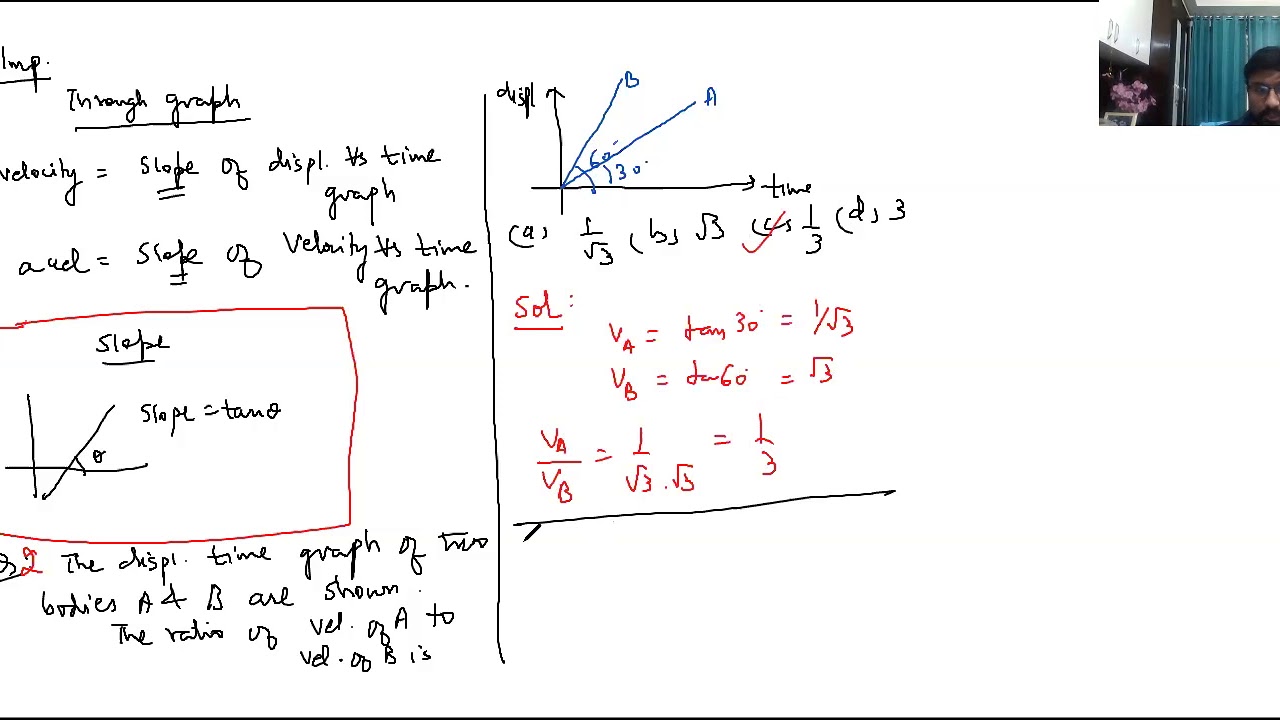 Imp.
Through graph
velocity = slope of displ. Vs time
graph
accl = slope of Velocity Vs time
graph.
Slope
slope = tanθ
θ
Q2 The displ. time graph of two
bodies A & B are shown.
The ratio of vel. of A to
vel. of B is
displ
B
A
60°
30°
time
(a) 1/√3 (b) √3 (c) 1/3 (d) 3
Sol:
V_A = tan 30° = 1/√3
V_B = tan 60° = √3
V_A/V_B = 1/√3.√3 = 1/3